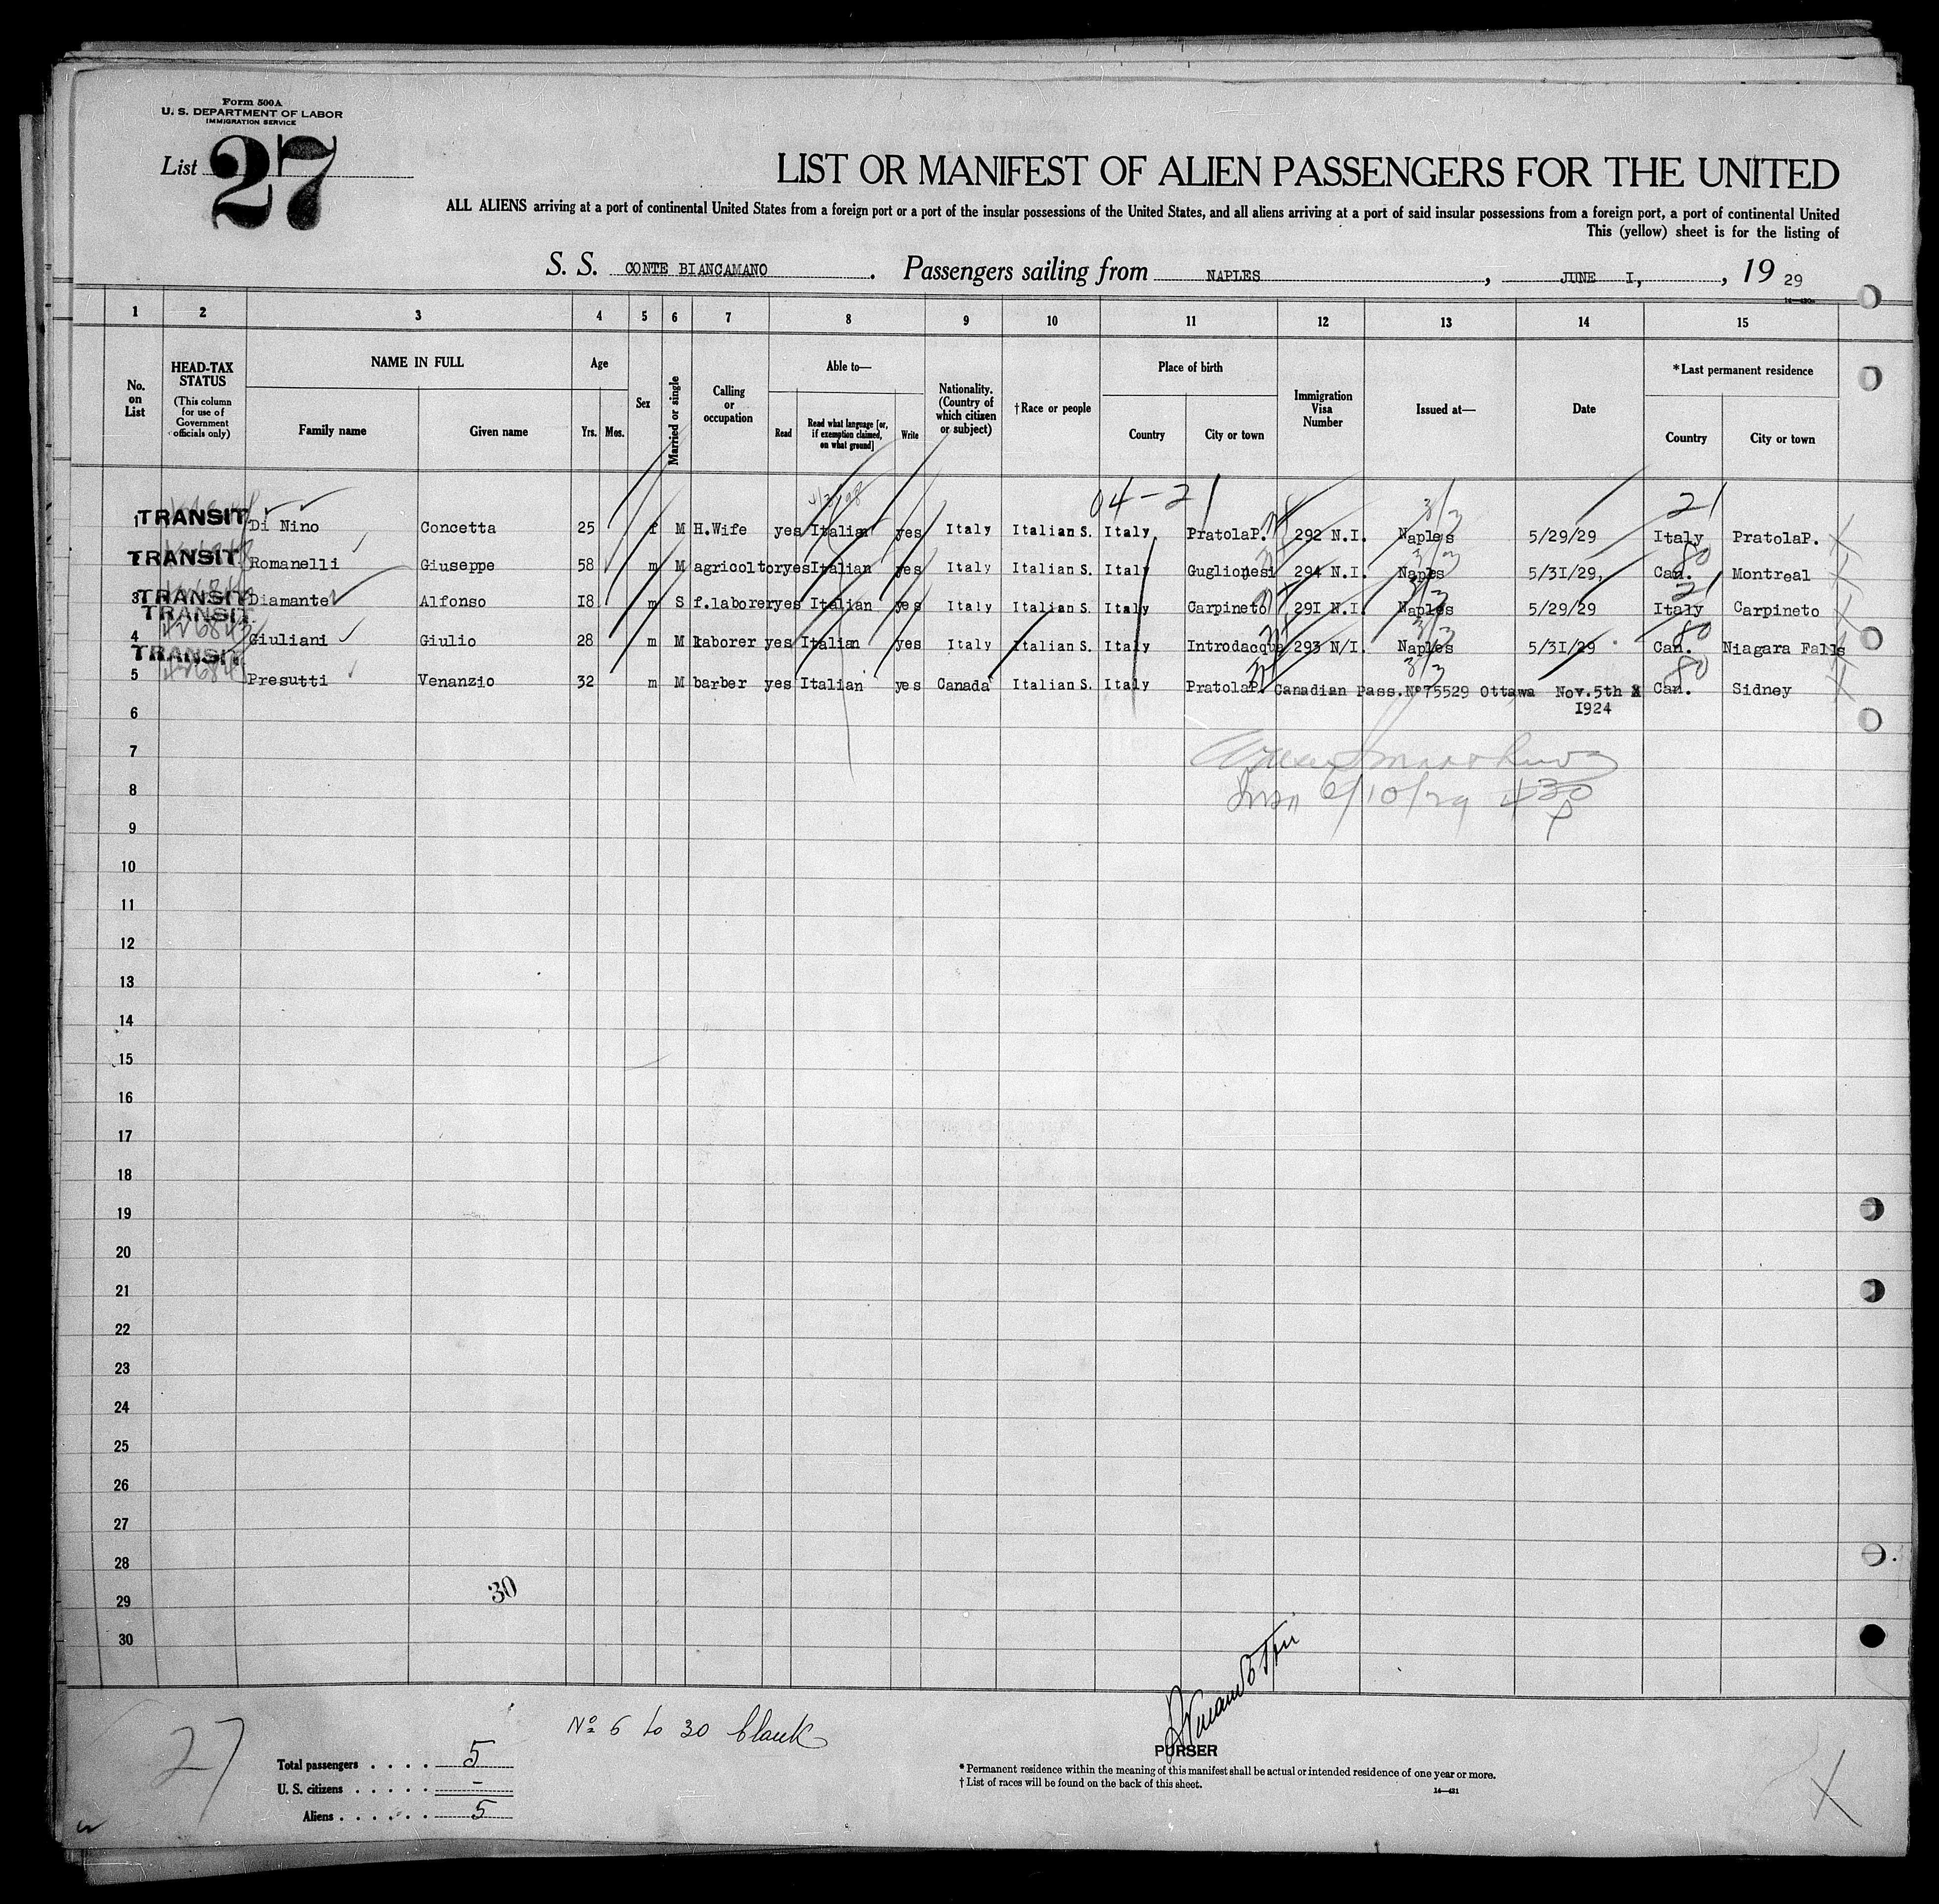 Form 500A
U. S. DEPARTMENT OF LABOR
IMMIGRATION SERVICE
List 27
LIST OR MANIFEST OF ALIEN PASSENGERS FOR THE UNITED
ALL ALIENS arriving at a port of continental United States from a foreign port or a port of the insular possessions of the United States, and all aliens arriving at a port of said insular possessions from a foreign port, a port of continental United
This (yellow) sheet is for the listing of
S. S. CONTE BIANCAMANO. Passengers sailing from NAPLES, JUNE I, , 19 29
1 2 3 4 5 6 7 8 9 10 11 12 13 14 15
No. on List
HEAD-TAX STATUS
(This column for use of Government officials only)
NAME IN FULL
Family name Given name
Age
Yrs. Mos.
Sex
Married or single
Calling or occupation
Able to—
Read Read what language [or, if exemption claimed, on what ground] Write
Nationality. (Country of which citizen or subject)
†Race or people
Place of birth
Country City or town
Immigration Visa Number
Issued at—
Date
*Last permanent residence
Country City or town
04-21 21
1 TRANSIT Di Nino Concetta 25 f M H.Wife yes Italian yes Italy Italian S. Italy PratolaP. 292 N.I. Naples 5/29/29 Italy PratolaP.
2 TRANSIT Romanelli Giuseppe 58 m M agricoltor yes Italian yes Italy Italian S. Italy Guglionesi 294 N.I. Naples 5/3I/29, Can. 80 Montreal
3 TRANSIT Diamante Alfonso I8 m S f.laborer yes Italian yes Italy Italian S. Italy Carpineto 29I N.I. Naples 5/29/29 Italy 21 Carpineto
TRANSIT
4 Giuliani Giulio 28 m M laborer yes Italian yes Italy Italian S. Italy Introdacqua 293 N/I. Naples 5/3I/29 Can. 80 Niagara Falls
TRANSIT
5 Presutti Venanzio 32 m M barber yes Italian yes Canada Italian S. Italy PratolaP. Canadian Pass.Nº75529 Ottawa Nov.5th Can. 80 Sidney
6 I924
7
8 6/10/29 430
9
10
11
12
13
14
15
16
17
18
19
20
21
22
23
24
25
26
27
28
29 30
30
27
Nº 6 to 30 blank
Total passengers . . . . 5
U. S. citizens . . . . . . -
Aliens . . . . . . 5
PURSER
* Permanent residence within the meaning of this manifest shall be actual or intended residence of one year or more.
† List of races will be found on the back of this sheet.
14—431